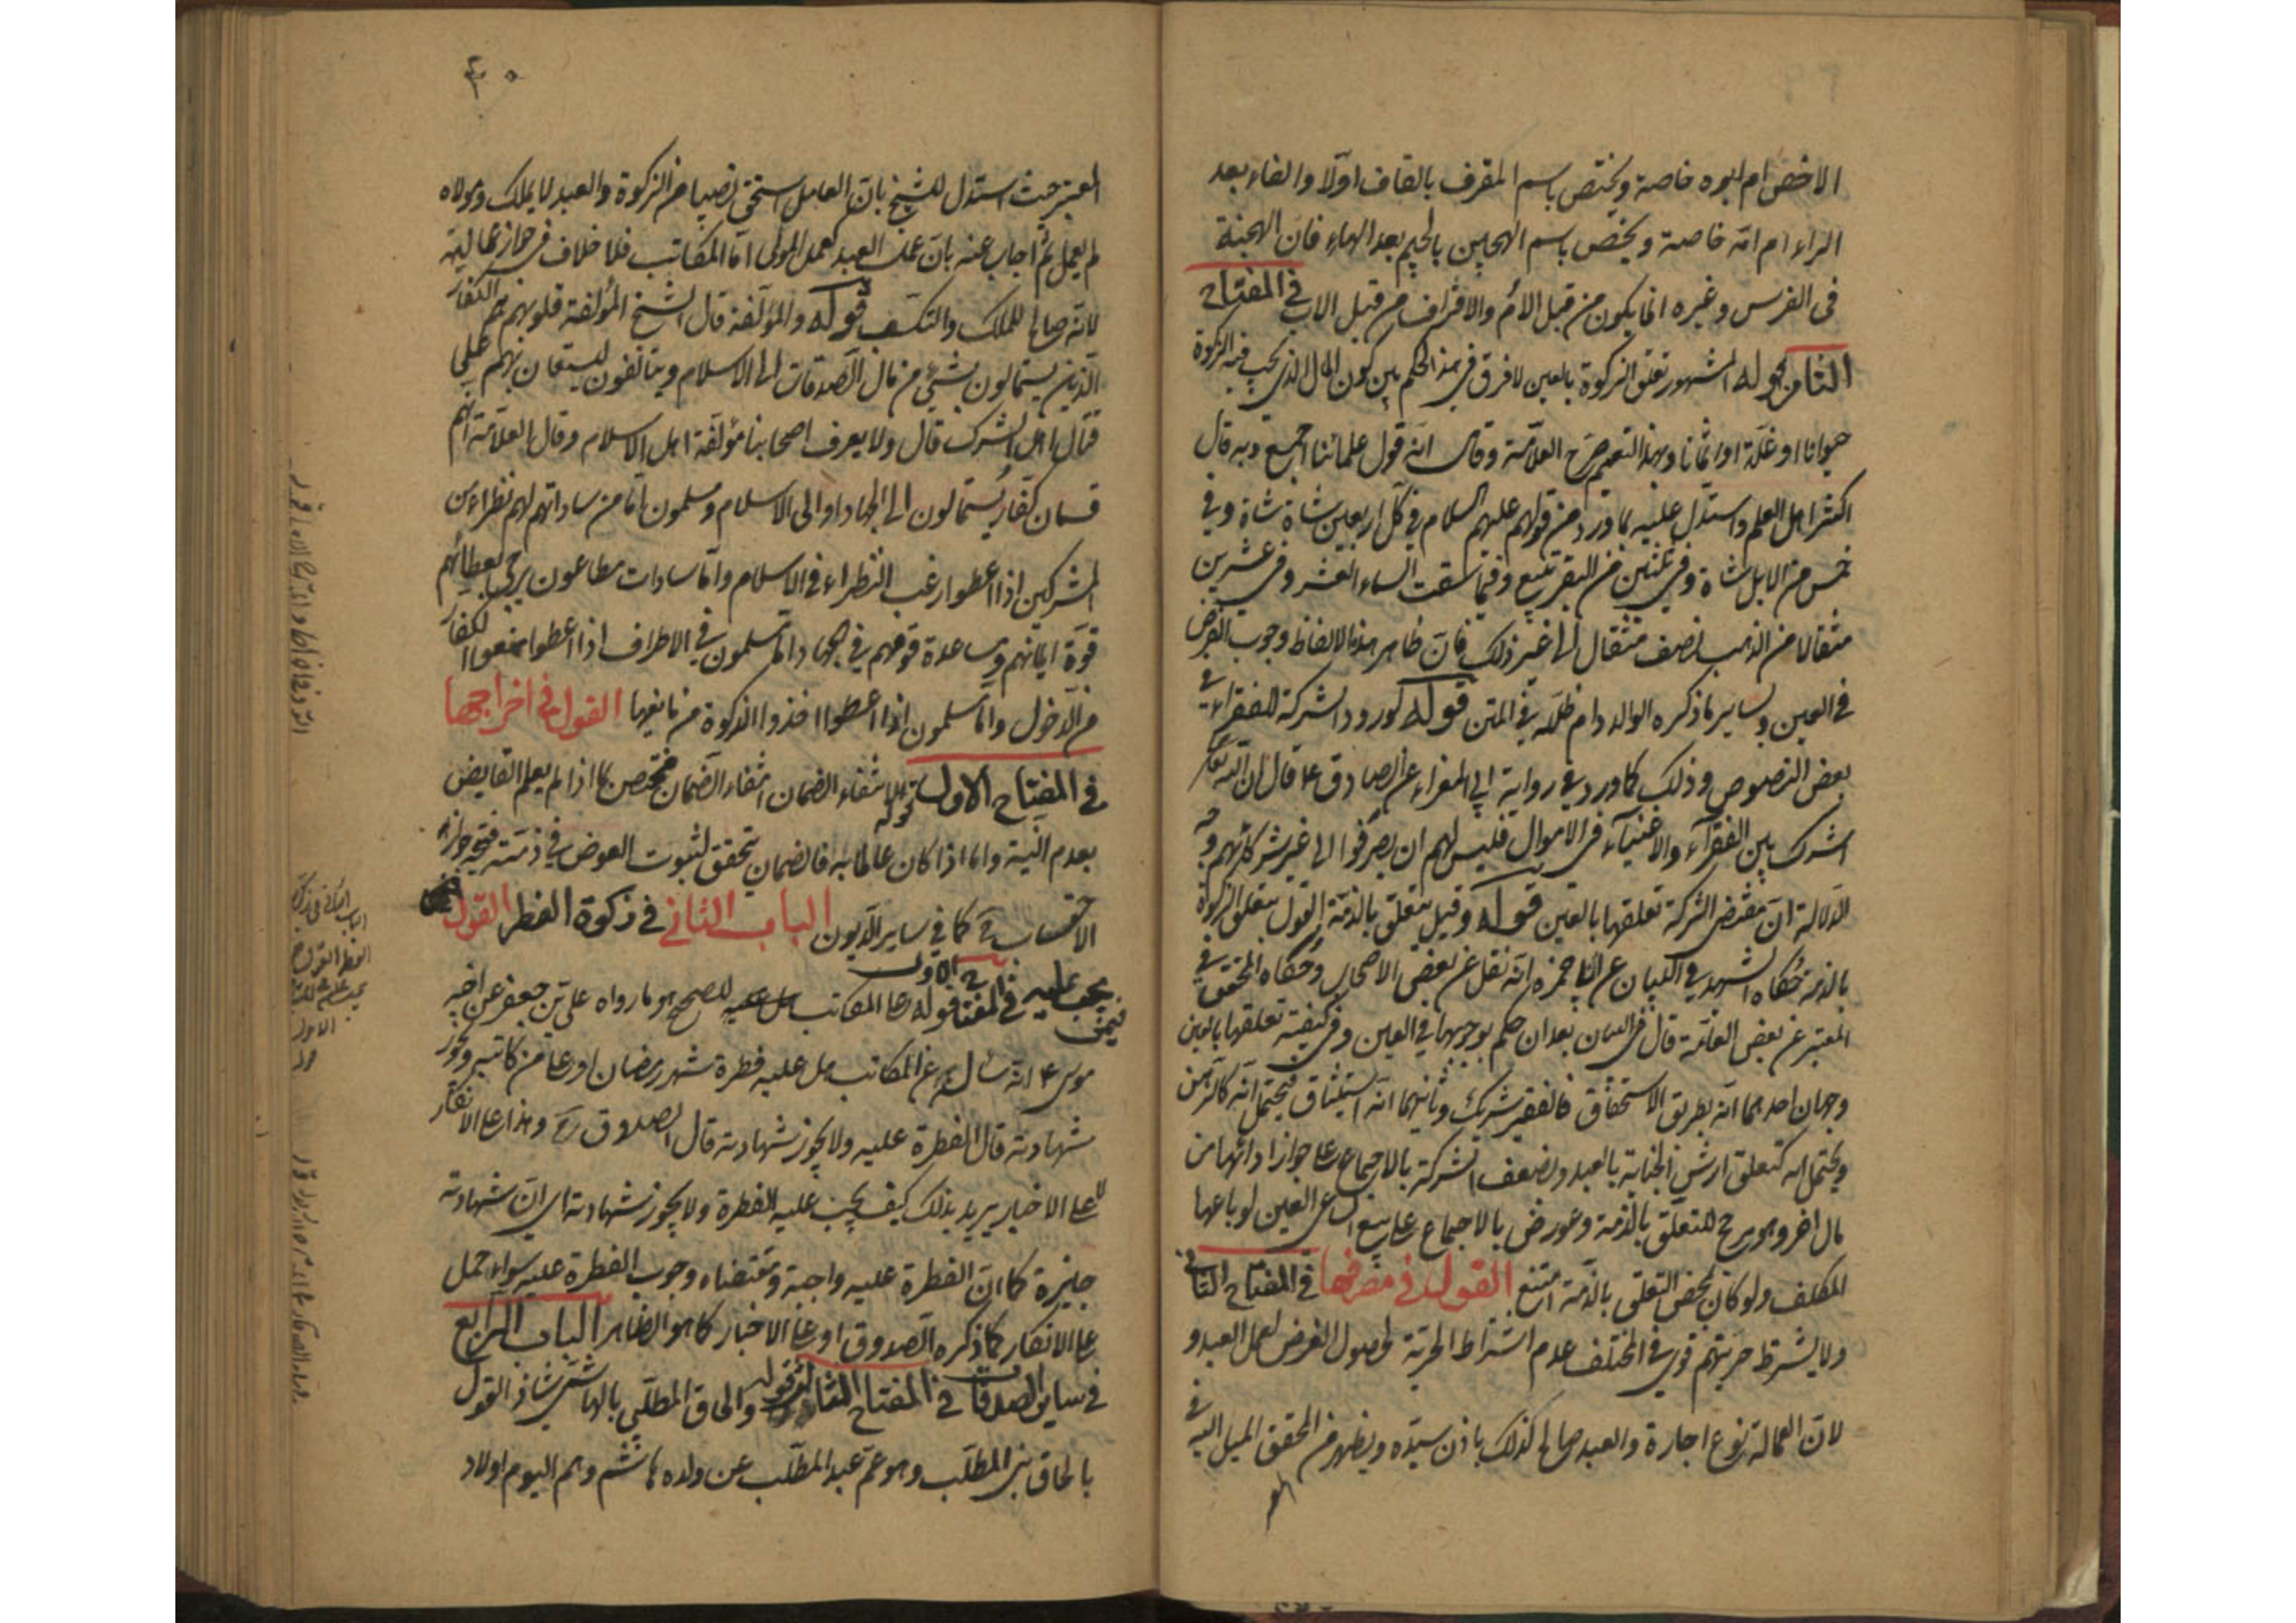 الاخص ام ابوه خاصة ويختص باسم المقرف بالقاف اولا والفاء بعد
الراء ام امه خاصة ويختص باسم الهجين بالجيم بعد الهاء فان الهجنة
في الفرس وغيره انما يكون من قبل الام والاقراف من قبل الاب في المفتاح
الثامن قوله المشهور تعلق الزكوة بالعين لا فرق في هذا الحكم بين كون المال الذي تجب فيه الزكوة
حيوانا او غلة او اثمانا وبهذا التعميم صرح العلامة وقال انه قول علمائنا اجمع وبه قال
اكثر اهل العلم واستدل عليه بما ورد من قولهم عليهم السلام في كل اربعين شاة شاة وفي
خمس من الابل شاة وفي ثلثين من البقر تبيع وفيما سقت السماء العشر وفي عشرين
مثقالا من الذهب نصف مثقال الى غير ذلك فان ظاهر هذه الالفاظ وجوب الفرض
في العين وساير ما ذكره الوالد دام ظله في المتن قوله كورود الشركة للفقراء في
بعض النصوص وذلك كما ورد في رواية ابي المغراء عن الصادق ع قال ان الله تعالى
اشرك بين الفقرآء والاغنيآء في الاموال فليس لهم ان يصرفوا الى غير شركائهم وجه
الدلالة ان مقتضى الشركة تعلقها بالعين قوله وقيل يتعلق بالذمة القول بتعلق الزكوة
بالذمة حكاه الشهيد في البيان عن ابن حمزه انه نقل عن بعض الاصحاب وحكاه المحقق في
المعتبر عن بعض العامة قال في البيان بعد ان حكم بوجوبها في العين وفي كيفية تعلقها بالعين
وجهان احدهما انه بطريق الاستحقاق فالفقير شريك وثانيهما انه استيثاق فيحتمل انه كالرهن
ويحتمل انه كتعلق ارش الجناية بالعبد ويضعف الشركة بالاجماع على جواز ادائها من
مال اخر وهو مرجح للتعلق بالذمة وعورض بالاجماع على تتبع الساعي العين لو باعها
المكلف ولو كان محض التعلق بالذمة امتنع القول في مصرفها في المفتاح الثاني
ولا يشترط حريتهم قوي في المختلف عدم اشتراط الحرية لحصول الغرض لعمل العبد و
لان العمالة نوع اجارة والعبد صالح لذلك باذن سيده ويظهر من المحقق الميل اليه في
المعتبر
٤٠
المعتبر حيث استدل للشيخ بان العامل يستحق نصيبا من الزكوة والعبد لا يملك ومولاه
لم يعمل ثم اجاب عنه بان عمل العبد كعمل المولى اما المكاتب فلا خلاف في جواز عماليته
لانه صالح للملك والتكسب قوله والمؤلفة قال الشيخ المؤلفة قلوبهم هم الكفار
الذين يستمالون بشيء من مال الصدقات الى الاسلام ويتألفون ليستعان بهم على
قتال اهل الشرك قال ولا يعرف اصحابنا مؤلفة اهل الاسلام وقال العلامة انهم
قسمان كفار يستمالون الى الجهاد او الى الاسلام ومسلمون اما من ساداتهم لهم نظراء من
المشركين اذا اعطوا رغب النظراء في الاسلام واما سادات مطاعون يرجى بعطائهم
قوة ايمانهم ومساعدة قومهم في الجهاد واما مسلمون في الاطراف اذا اعطوا منعوا الكفار
من الدخول واما مسلمون اذا اعطوا اخذوا الزكوة من مانعيها القول في اخراجها
في المفتاح الاول قوله لانتفاء الضمان انتفاء الضمان مختص بما اذا لم يعلم القابض
بعدم النية واما اذا كان عالما به فالضمان يتحقق لثبوت العوض في ذمته فيتجه جواز
الاحتساب ح كما في ساير الديون الباب الثاني في زكوة الفطر القول
فيمن يجب عليه في المفتاح الاول قوله وعلى المكاتب للصحيح هو ما رواه علي بن جعفر عن اخيه
موسى ع انه سأله عن المكاتب هل عليه فطرة شهر رمضان او على من كاتبه ويجوز
شهادته قال الفطرة عليه ولا يجوز شهادته قال الصدوق ره وهذا على الانكار
لا على الاخبار يريد بذلك كيف يجب عليه الفطرة ولا يجوز شهادته اي ان شهادته
جايزة كما ان الفطرة عليه واجبة ومقتضاه وجوب الفطرة عليه سواء حمل
على الانكار كما ذكره الصدوق او على الاخبار كما هو الظاهر الباب الرابع
في ساير الصدقات في المفتاح الثالث قوله والحاق المطلبي بالهاشمي شاذ القول
بالحاق بني المطلب وهو عم عبد المطلب عن ولده هاشم وهم اليوم اولاد